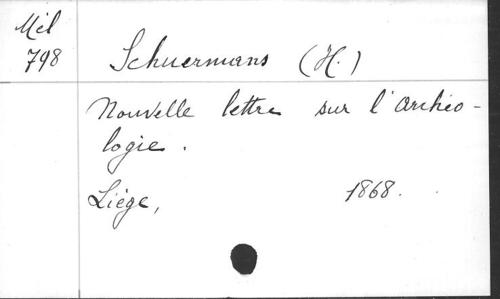 Mél
798
Schuermans (H.)
Nouvelle lettre sur l'archéo-
logie.
Liége,
1868.